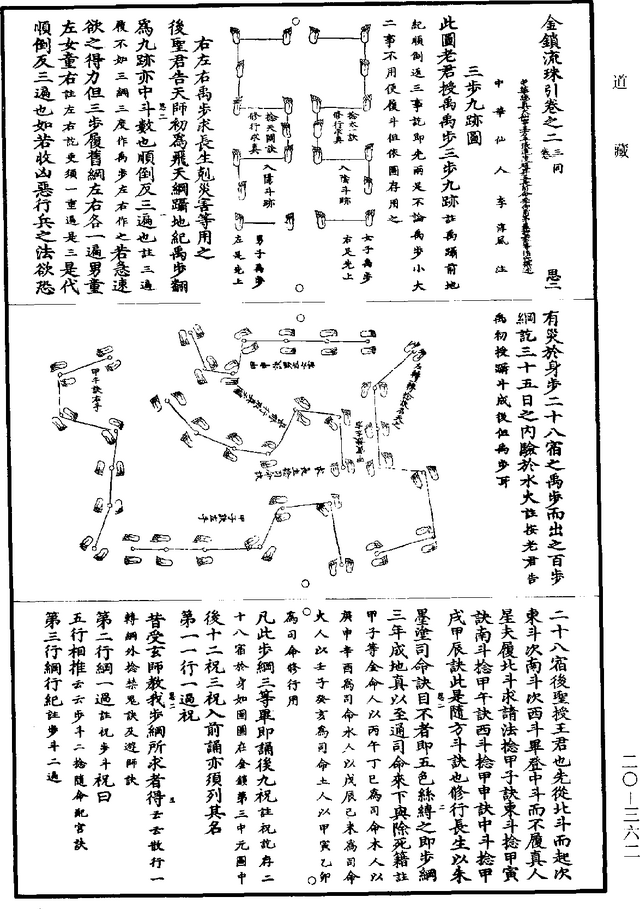 道藏
金鎖流珠引卷之二 三同卷 思二
中華仙人李淳風註
三步九跡圖
此圖老君授禹禹步三步九跡註禹躡前地
紀順倒返三事訖即先兩足不論禹步小大
二事不用使履斗但依圖存用之
女子禹步
右足先上
男子禹步
左足先上
入陰斗跡
捻水訣
修行求真
入陽斗跡
捻天關訣
修行求真
右左右禹步求長生剋災害等用之
後聖君告天師初為飛天綱躡地紀禹步翻
為九跡亦中斗數也順倒反三遍也註三遍
履不如三綱三度作禹步左右作之若急速
欲之得力但三步履舊綱左右各一遍男童
左女童右註左右訖更須一重過是三是代
順倒反三遍也如若收凶惡行兵之法欲恐
有災於身步二十八宿之禹步而出之百步
綱訖三十五日之內驗於水火註按老君告
禹初授躡斗成後但禹步耳
甲子訣右手
甲子訣左手
二十八宿後聖授王君也先從北斗而起次
東斗次南斗次西斗畢登中斗而不履真人
星夫履北斗求請法捻甲子訣東斗捻甲寅
訣南斗捻甲午訣西斗捻甲申訣中斗捻甲
戌甲辰訣此是隨方斗訣也修行長生以朱
墨塗司命訣目不者即五色絲縛之即步綱
三年成地真以至通司命來下與除死籍註
甲子等金命人以丙午丁巳為司命木人以
庚申辛酉為司命水人以戊辰己未為司命
火人以壬子癸亥為司命土人以甲寅乙卯
為司命修行用
凡此步綱三等畢即誦後九祝註祝訖存二
十八宿於身如圖圖在金鎖第三中元圖中
後十二祝三祝入前誦亦須列其名
第一一行一過祝
昔受玄師教我步綱所求者得云云散行一
轉綱外捻禁鬼訣及遊師訣
第二行綱一過註祝步斗祝曰
五行相推云云步斗二捻隨命配宮訣
第三行綱行紀註步斗二過
二〇—三六二